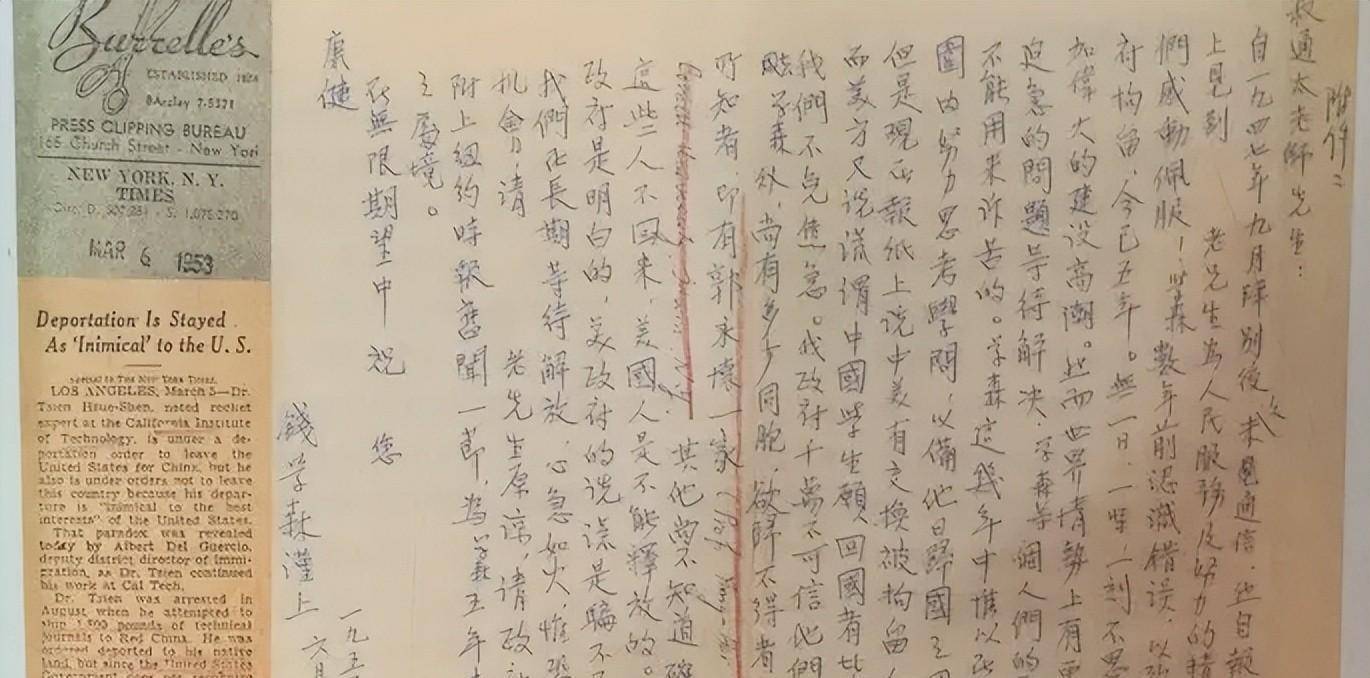 Burrelle's
ESTABLISHED 1888
BArclay 7-5371
PRESS CLIPPING BUREAU
165 Church Street - New York
NEW YORK, N. Y.
TIMES
MAR 6 1953
Deportation Is Stayed
As 'Inimical' to the U. S.
Special to THE NEW YORK TIMES.
LOS ANGELES, March 5—Dr.
Tsien Hsue-Shen, noted rocket
expert at the California Institute
of Technology, is under a de-
portation order to leave the
United States for China, but he
also is under orders not to leave
this country because his depar-
ture is "inimical to the best
interests" of the United States.
That paradox was revealed
today by Albert Del Guercio,
deputy district director of immi-
gration, as Dr. Tsien continued
his work at Cal Tech.
Dr. Tsien was arrested in
August when he attempted to
ship 1,800 pounds of technical
journals to Red China. He was
ordered deported to his native
land, but since the United States
附件二
叔通太老師先生:
自一九四七年九月拜別後久未通信,然自報
上見到 老先生為人民服務及努力的精
們感動佩服!學森數年前認識錯誤,以致
府拘留,今已五年。無一日、一時、一刻不思
如偉大的建設高潮。然而世界情勢上有更
迫急的問題等待解決,學森等個人們的
不能用來訴苦的。學森這幾年中惟以在
圍內努力思考學問,以備他日歸國之用
但是現在報紙上說中美有交換被拘留人
而美方又說謊謂中國學生願回國者
我們不免焦急。我政府千萬不可信他們
學森外,尚有多少同胞,欲歸不得者
所知者,即有郭永懷一家
其他尚不知道
這些人不回來,美國人是不能釋放的。
政府是明白的,美政府的說謊是騙不
我們在長期等待解放,心急如火,惟
機會,請 老先生原諒,請政府
附上紐約時報舊聞一節,為學森五年
之處境。
在無限期望中祝 您
康健
錢學森謹上
一九五
六月